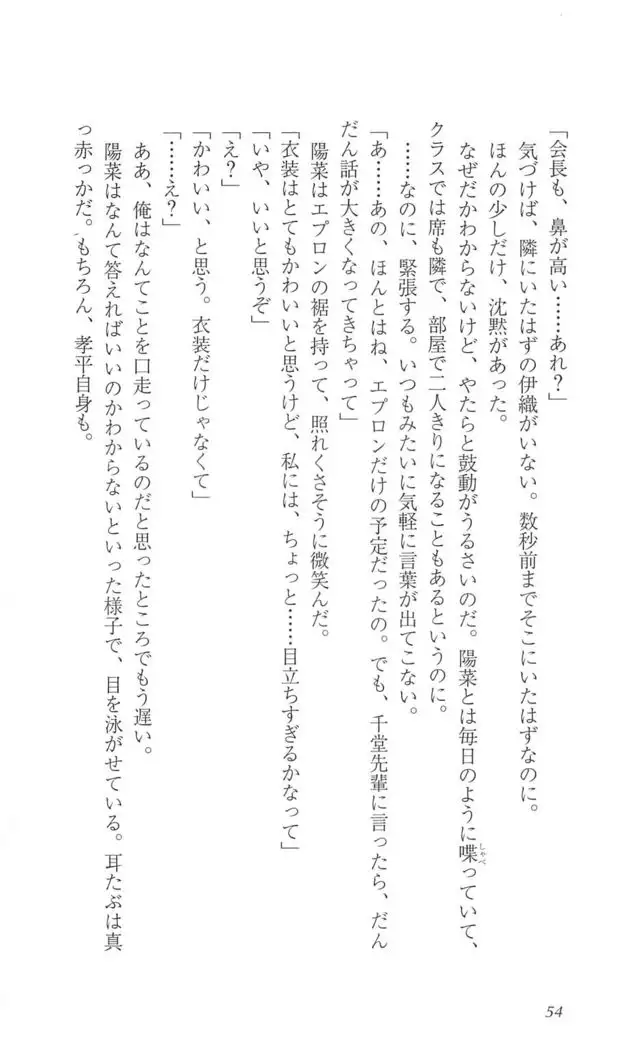 「会長も、鼻が高い……あれ？」
気づけば、隣にいたはずの伊織がいない。数秒前までそこにいたはずなのに。
ほんの少しだけ、沈黙があった。
なぜだかわからないけど、やたらと鼓動がうるさいのだ。陽菜とは毎日のように喋っていて、
しゃべ
クラスでは席も隣で、部屋で二人きりになることもあるというのに。
……なのに、緊張する。いつもみたいに気軽に言葉が出てこない。
「あ……あの、ほんとはね、エプロンだけの予定だったの。でも、千堂先輩に言ったら、だん
だん話が大きくなってきちゃって」
陽菜はエプロンの裾を持って、照れくさそうに微笑んだ。
「衣装はとてもかわいいと思うけど、私には、ちょっと……目立ちすぎるかなって」
「いや、いいと思うぞ」
「え？」
「かわいい、と思う。衣装だけじゃなくて」
「……え？」
ああ、俺はなんてことを口走っているのだと思ったところでもう遅い。
陽菜はなんて答えればいいのかわからないといった様子で、目を泳がせている。耳たぶは真
っ赤っかだ。もちろん、孝平自身も。
54